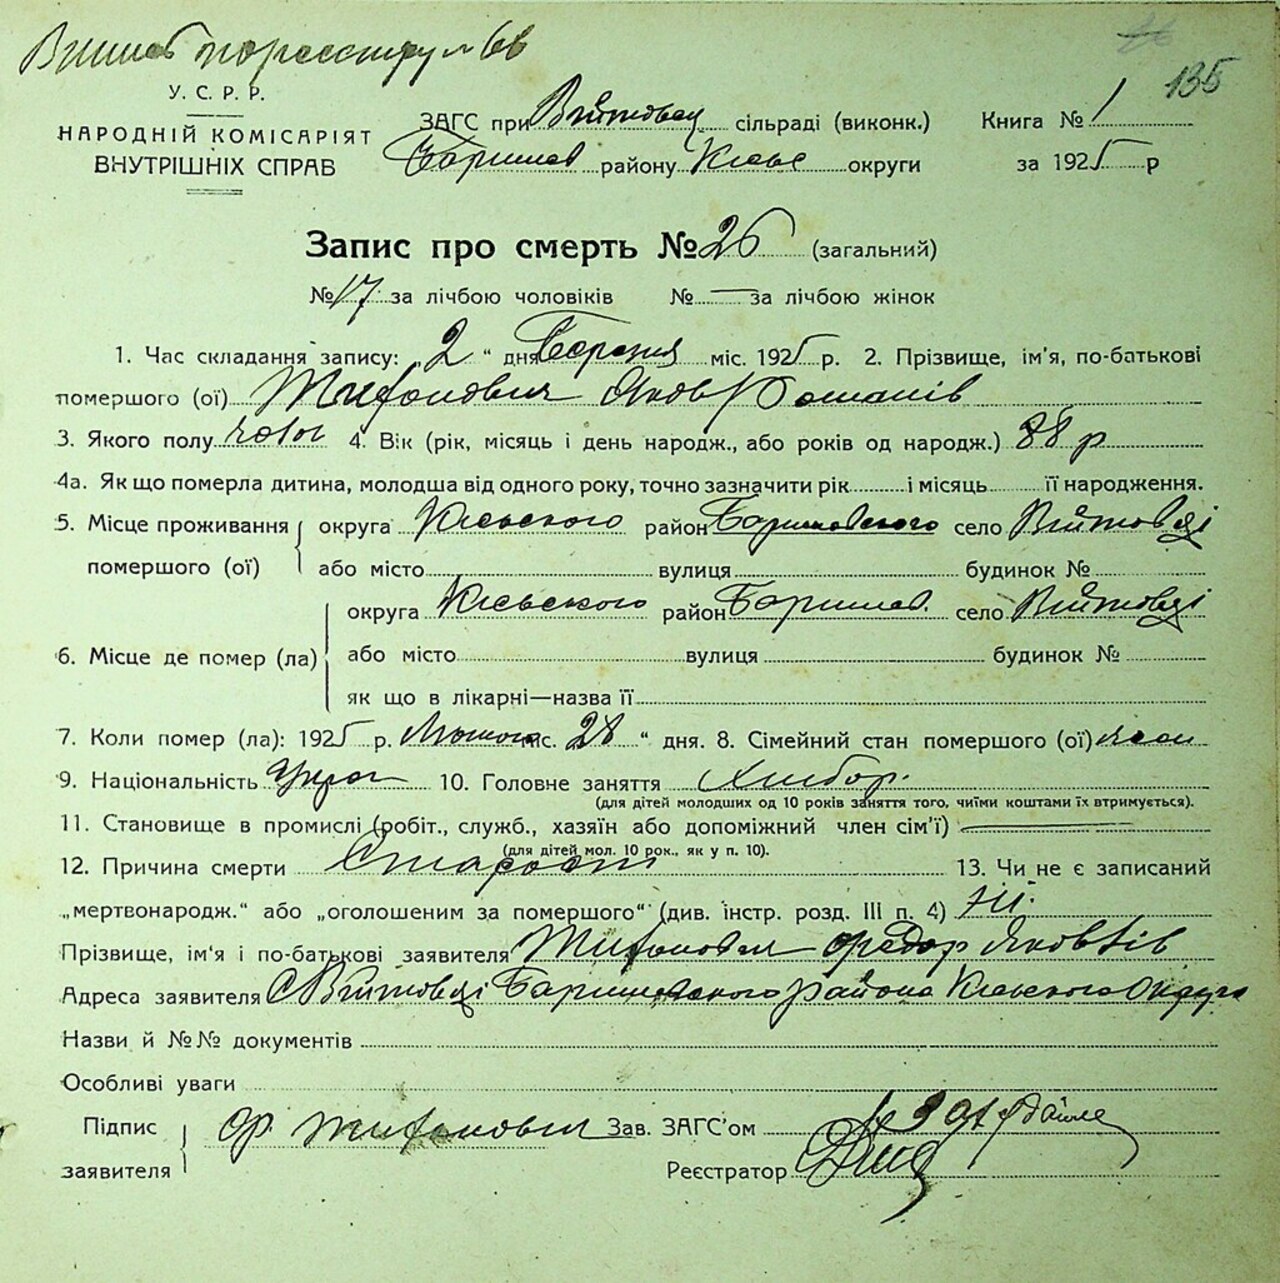 135
У. С. Р. Р.
НАРОДНІЙ КОМІСАРІЯТ
ВНУТРІШНІХ СПРАВ
ЗАГС при Війтовец сільраді (виконк.) Книга № 1
Баришев району Київс округи за 1925 р
Запис про смерть № 26 (загальний)
№ 17 за лічбою чоловіків № — за лічбою жінок
1. Час складання запису: 2 " дня Березня міс. 1925 р. 2. Прізвище, ім'я, по-батькові
помершого (ої) Яков Романів
3. Якого полу чолог 4. Вік (рік, місяць і день народж., або років од народж.) 88 р
4а. Як що померла дитина, молодша від одного року, точно зазначити рік і місяць її народження.
5. Місце проживання помершого (ої) округа Київського район Баришевського село Війтовці
або місто вулиця будинок №
6. Місце де помер (ла) округа Київського район Баришев. село Війтовці
або місто вулиця будинок №
як що в лікарні—назва її
7. Коли помер (ла): 1925 р. Лютого міс. 28 " дня. 8. Сімейний стан помершого (ої)
9. Національність Украї 10. Головне заняття Хлібор.
(для дітей молодших од 10 років заняття того, чиїми коштами їх втримується).
11. Становище в промислі (робіт., служб., хазяїн або допоміжний член сім'ї) —
(для дітей мол. 10 рок., як у п. 10).
12. Причина смерти Старость 13. Чи не є записаний
„мертвонародж." або „оголошеним за помершого" (див. інстр. розд. III п. 4) Ні.
Прізвище, ім'я і по-батькові заявителя Федор Яковлів
Адреса заявителя С Війтовці Баришевського района Київського Округа
Назви й №№ документів
Особливі уваги
Підпис заявителя Ф.
Зав. ЗАГС'ом
Реєстратор